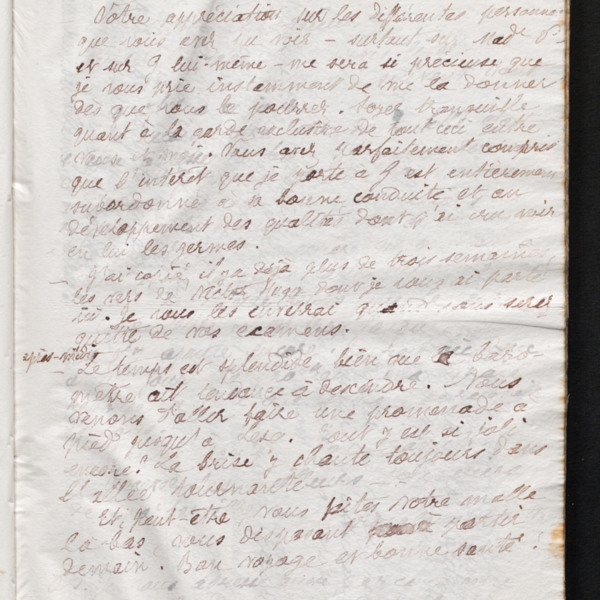 Votre appréciation sur les différentes personnes
que vous avez pu voir – surtout sur Made
et sur G lui-même – me sera si précieuse que
je vous prie instamment de me la donner
dès que vous le pourrez. Soyez tranquille
quant à la garde exclusive de tout ceci entre
vous et moi. Vous avez parfaitement compris
que l'intérêt que je porte à G est entièrement
subordonné à sa bonne conduite et au
développement des qualités dont j'ai cru voir
en lui les germes.
J'ai copié, il y a déjà plus de trois semaines,
les vers de Victor Hugo dont je vous ai parlé
ici. Je vous les enverrai quand vous serez
quitte de vos examens.
après-midi
Le temps est splendide, bien que le baro-
mètre ait tendance à descendre. Nous
venons d'aller faire une promenade à
pied jusqu'à Lesa. Tout y est si joli
encore! La brise y chante toujours dans
l'allée
Et peut-être vous faites votre malle
là-bas, vous disposant partir
demain. Bon voyage et bonne santé!